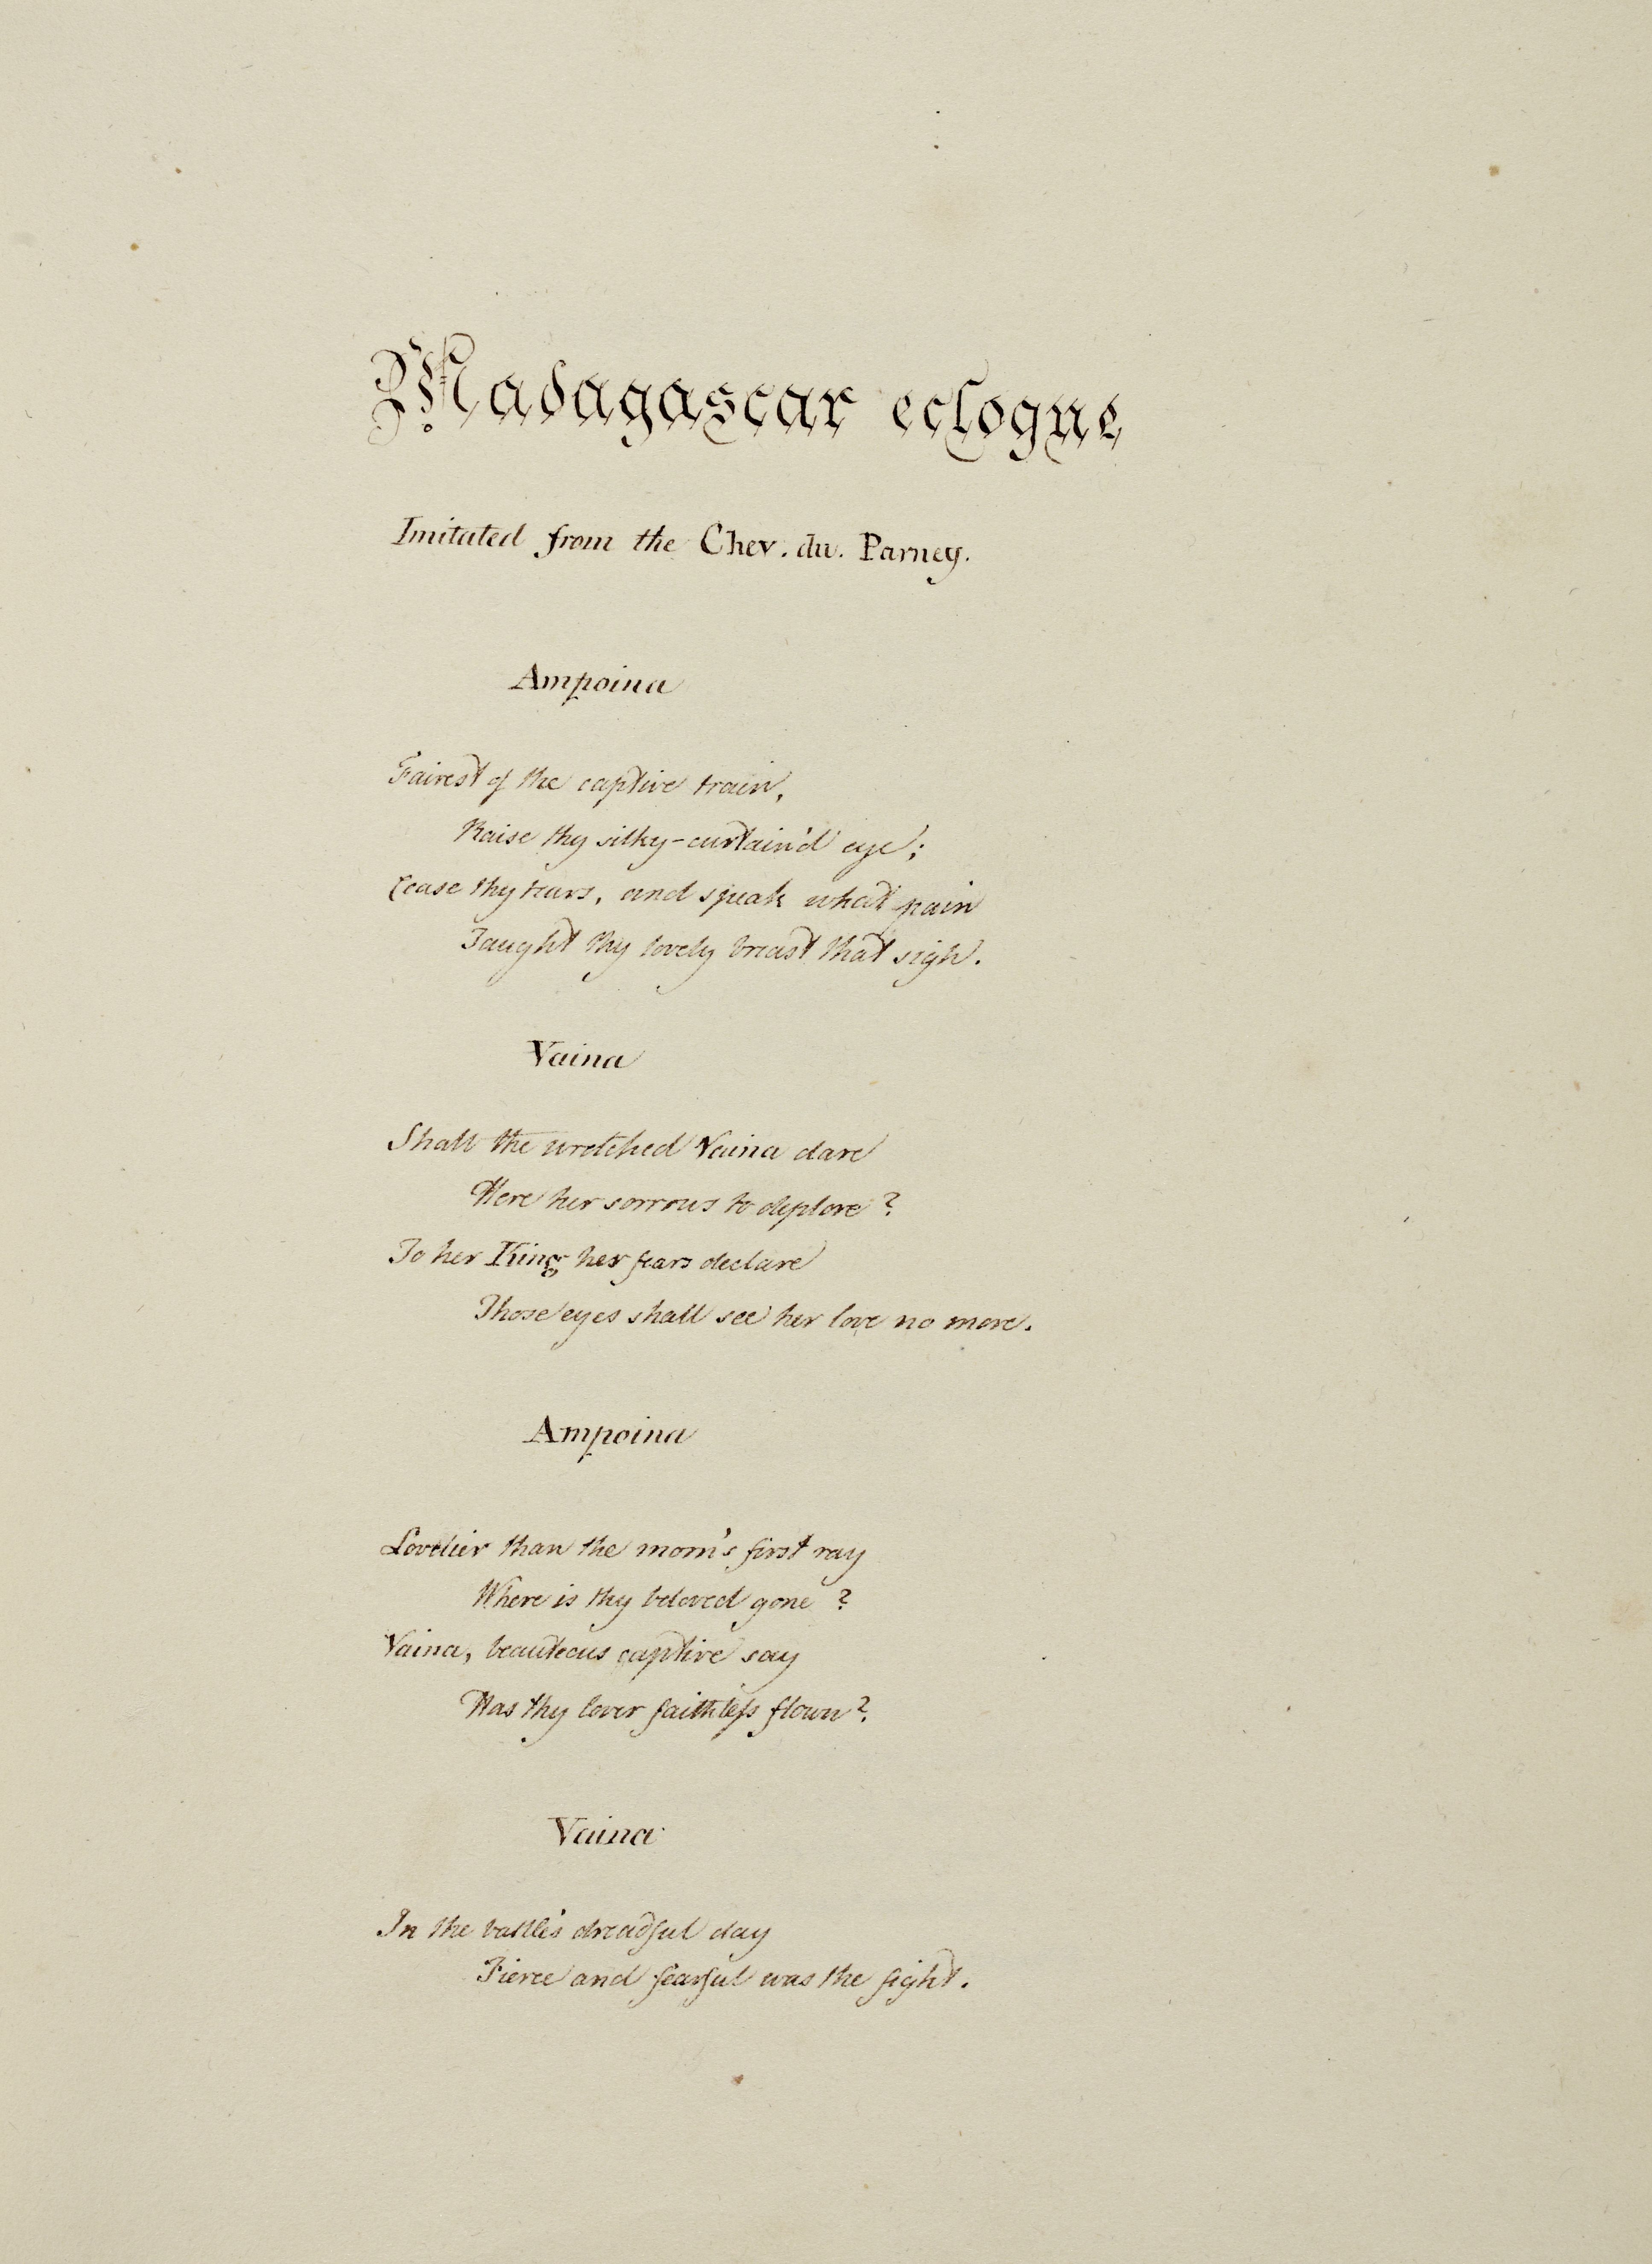 Madagascar eclogue
Imitated from the Chev. du. Parney.
Ampoina
Fairest of the captive train,
Raise thy silky-curtain'd eye;
Cease thy tears, and speak what pain
Taught thy lovely breast that sigh.
Vaina
Shall the wretched Vaina dare
Here her sorrows to deplore?
To her King her fears declare
Those eyes shall see her love no more.
Ampoina
Lovelier than the morn's first ray
Where is thy beloved gone?
Vaina, beauteous captive say
Has thy lover faithleſs flown?
Vaina
In the battle's dreadful day
Fierce and fearful was the fight.